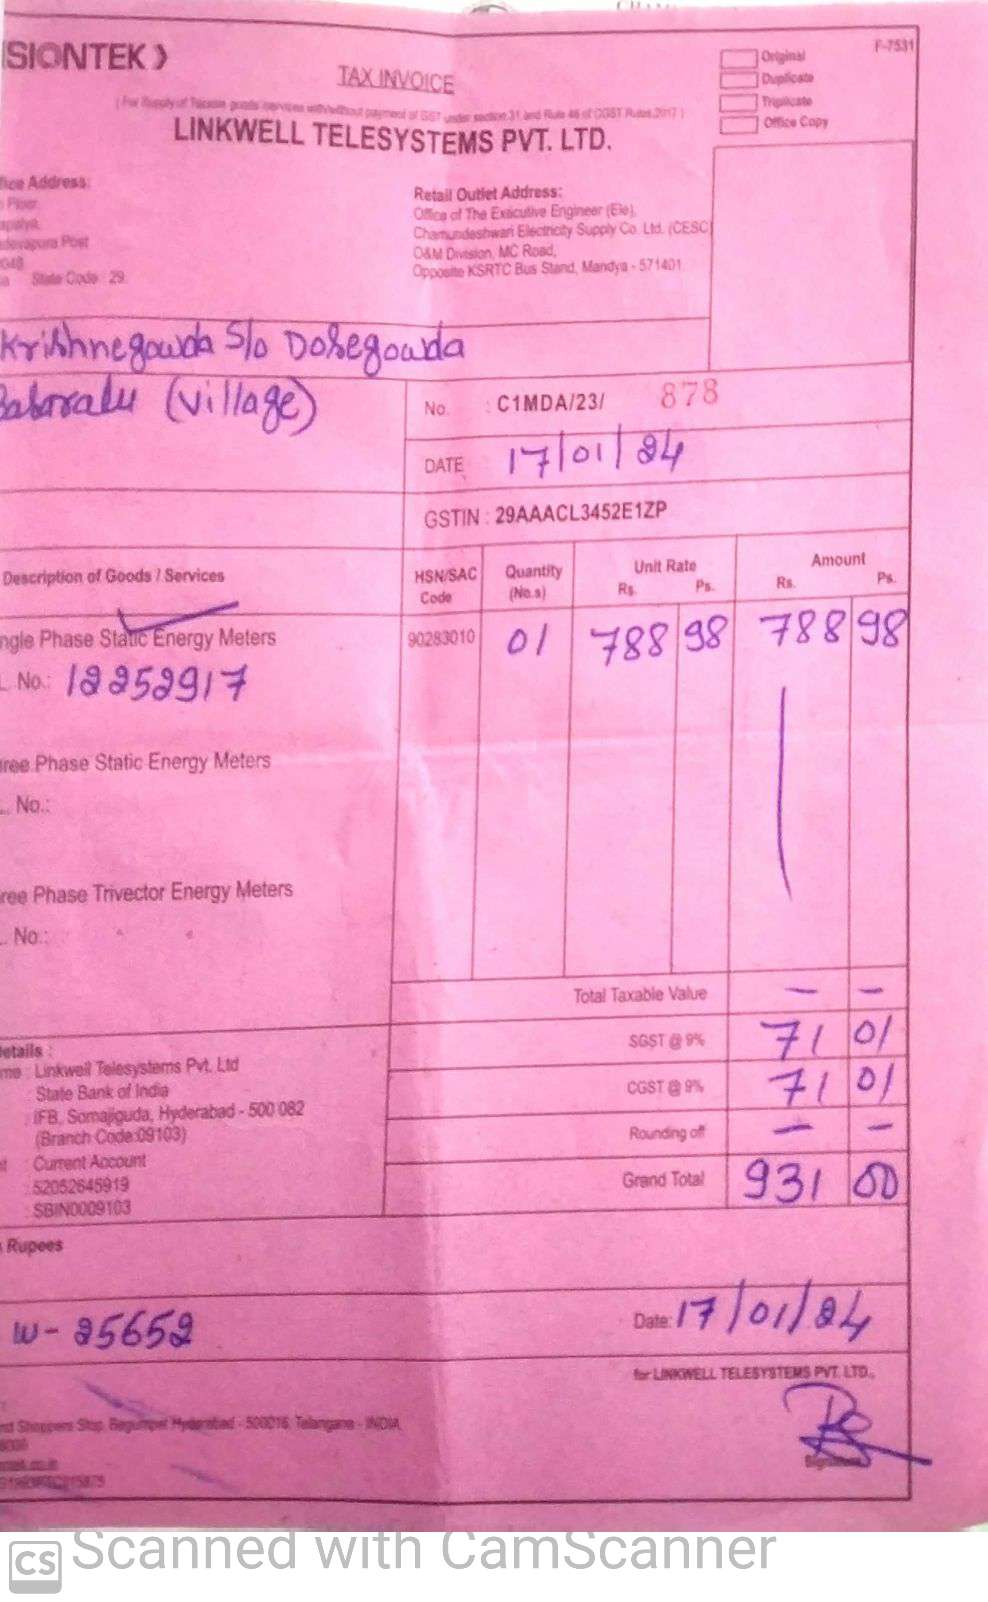 SIONTEK
F-7531
TAX INVOICE
Original
Duplicate
Triplicate
Office Copy
( For Supply of Taxable goods /services with/without payment of GST under section 31 and Rule 46 of CGST Rules 2017 )
LINKWELL TELESYSTEMS PVT. LTD.
fice Address:
Floor
State Code : 29
devapura Post
048
Retail Outlet Address:
Office of The Exicutive Engineer (Ele),
Chamundeshwari Electricity Supply Co. Ltd. (CESC)
O&M Division, MC Road,
Opposite KSRTC Bus Stand, Mandya - 571401
Krishnegowda S/o Dosegowda
(village)
No. : C1MDA/23/ 878
DATE 17/01/24
GSTIN : 29AAACL3452E1ZP
Description of Goods / Services HSN/SAC Code Quantity (No.s) Unit Rate Rs. Ps. Amount Rs. Ps.
ngle Phase Static Energy Meters 90283010 01 788 98 788 98
L. No.: 12252917
ree Phase Static Energy Meters
L. No.:
ree Phase Trivector Energy Meters
L. No.:
Total Taxable Value - -
SGST @ 9% 71 01
CGST @ 9% 71 01
Rounding off - -
Grand Total 931 00
Details :
me : Linkwell Telesystems Pvt. Ltd
: State Bank of India
: IFB, Somajiguda, Hyderabad - 500 082
(Branch Code:09103)
t : Current Account
: 52052645919
: SBIN0009103
Rupees
W- 25652
Date: 17/01/24
for LINKWELL TELESYSTEMS PVT. LTD.,
nd Shoppers Stop, Begumpet Hyderabad - 500016, Telangana - INDIA,
Signature
CS Scanned with CamScanner